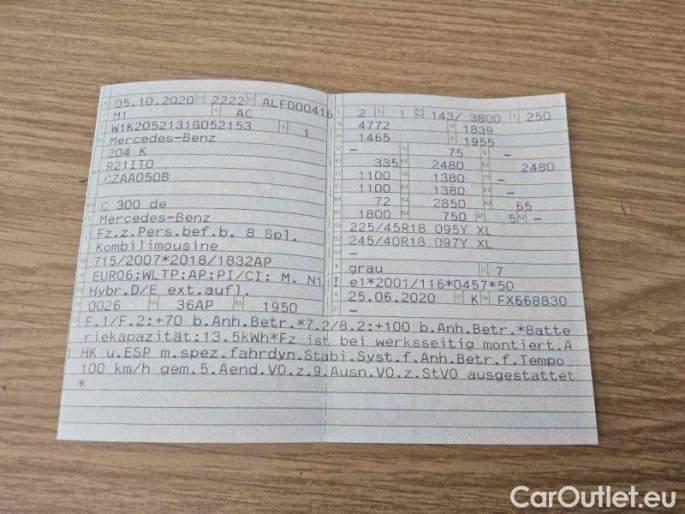 05.10.2020 2222 ALE000416
M1 AC
W1K2052131G052153 1
Mercedes-Benz
204 K
R21IT0
CZAA050B
C 300 de
Mercedes-Benz
Fz.z.Pers.bef.b. 8 Spl.
Kombilimousine
715/2007*2018/1832AP
EURO6;WLTP;AP;PI/CI: M, N1 I
Hybr.D/E ext.aufl.
0026 36AP 1950
2 1 143/ 3800 250
4772 1839
1465 1955
– 75 –
335 2480 2480
1100 1380 –
1100 1380 –
72 2850 65
1800 750 5 –
225/45R18 095Y XL
245/40R18 097Y XL
–
–
grau 7
e1*2001/116*0457*50
25.06.2020 K FX668830
F.1/F.2:+70 b.Anh.Betr.*7.2/8.2:+100 b.Anh.Betr.*Batte
riekapazität:13.5kWh*Fz ist bei werksseitig montiert.A
HK u.ESP m.spez.fahrdyn.Stabi.Syst.f.Anh.Betr.f.Tempo
100 km/h gem.5.Aend.VO.z.9.Ausn.VO.z.StVO ausgestattet
*
CarOutlet.eu